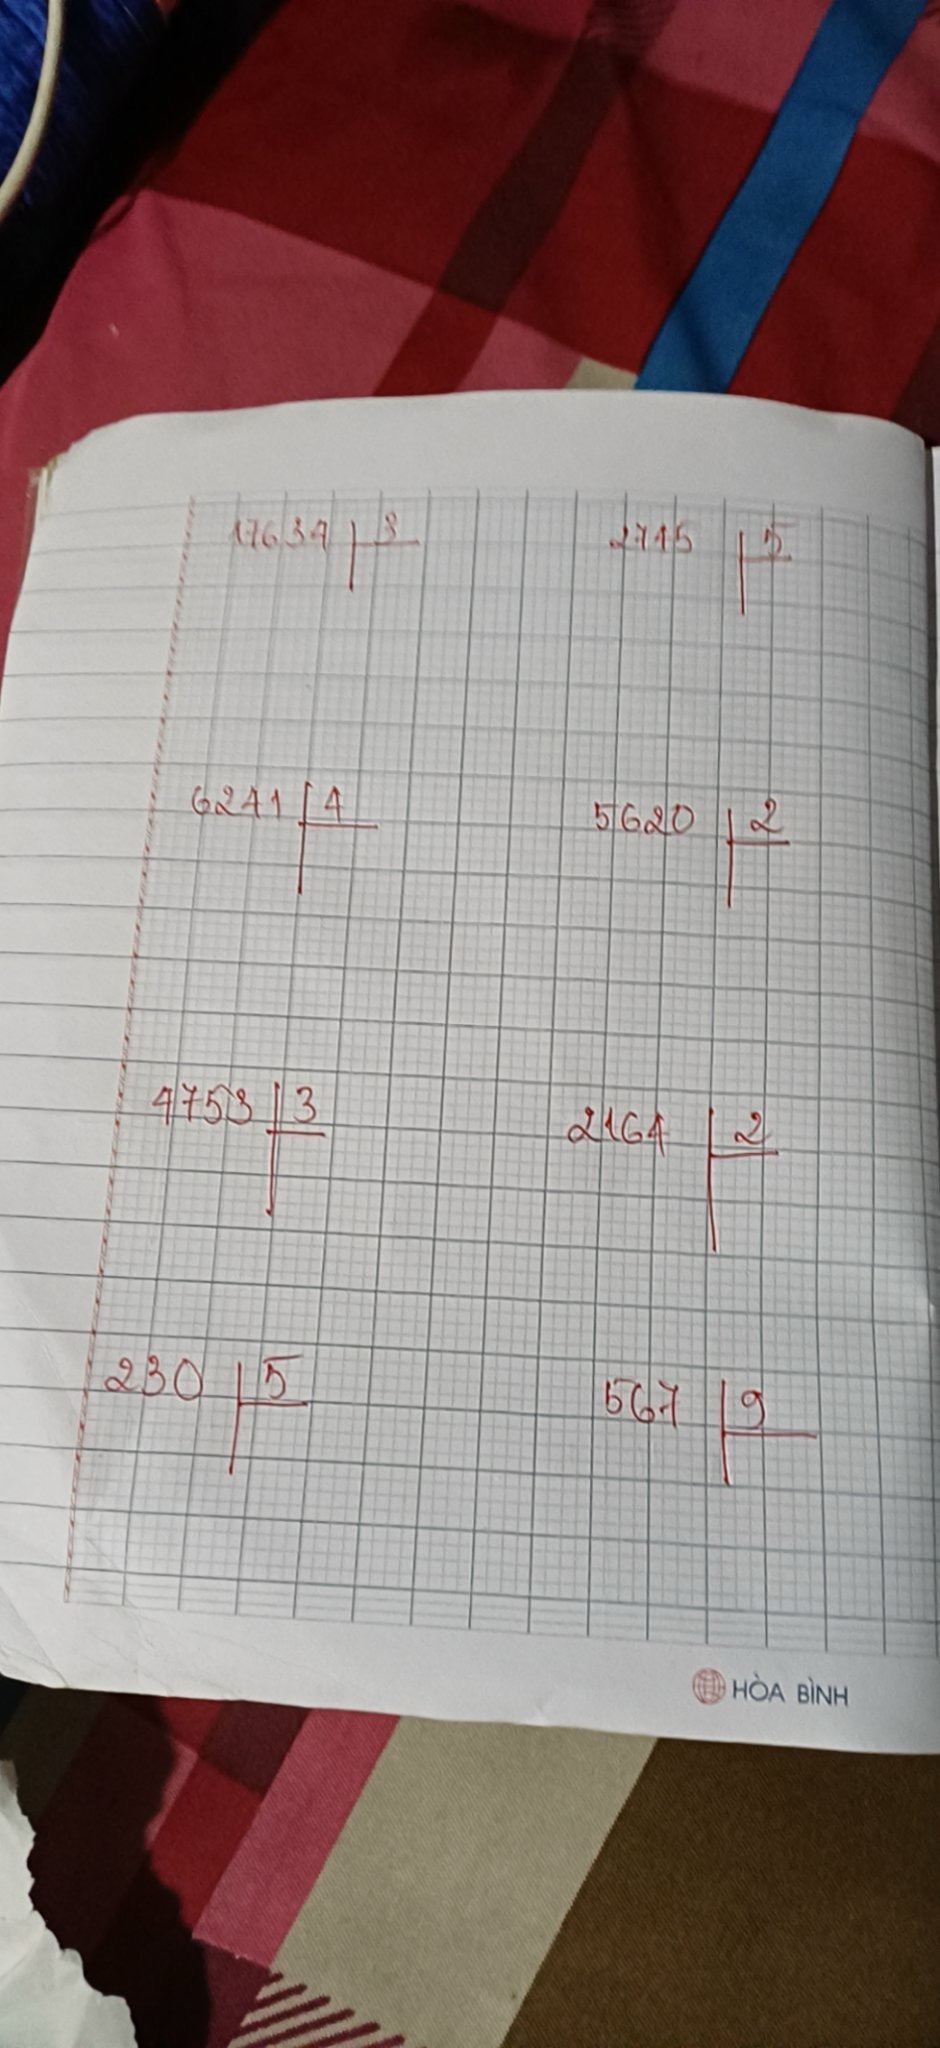 17634 3
2715 5
6241 4
5620 2
4753 3
2164 2
230 5
567 9
HÒA BÌNH